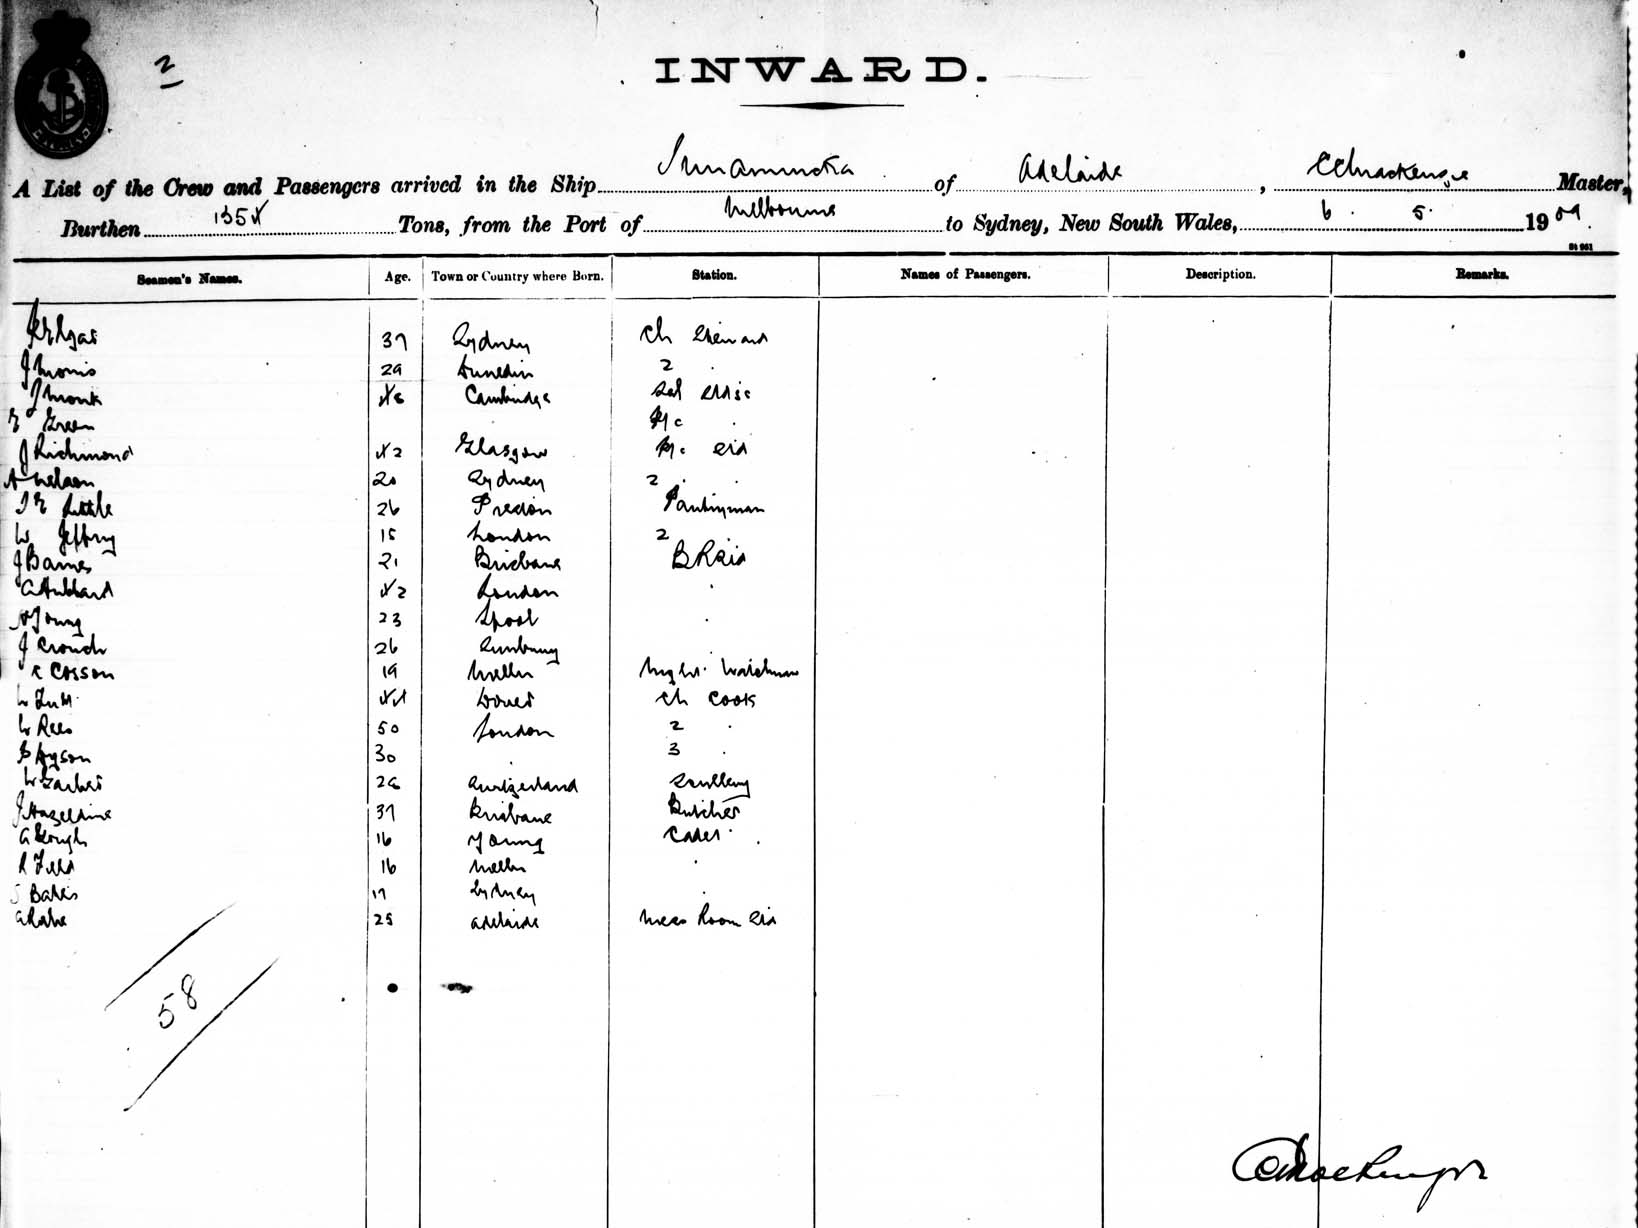 2
INWARD.
A List of the Crew and Passengers arrived in the Ship Innamincka of Adelaide, C C Mackenzie Master,
Burthen Tons, from the Port of Melbourne to Sydney, New South Wales, 6. 5. 1909.
Seamen's Names. Age. Town or Country where Born. Station. Names of Passengers. Description. Remarks.
37 Sydney Ch Steward
J Morris 29 Dunedin 2 .
J Monk Cambridge
E Green
J Richmond 42 Glasgow
A Nelson 20 Sydney 2 .
Little 26 Preston Pantryman
W Jeffrey 15 London 2
J Barnes 21 Brisbane
A Hubbard 42 London .
A Young 23 Lpool .
J Crouch 26 Sunbury .
Cosson 19 Melbn Night Watchman
W 44 Dover Ch Cook
W Rees 50 London 2 .
Hyson 30 . 3 .
W 29 Switzerland Scullery
J Hazeldine 37 Brisbane Butcher
A Keough 16 Young Cadet .
R Field 16 Melbn .
S Bates 17 Sydney .
A 25 Adelaide Mess Room Std
58
C C Mackenzie